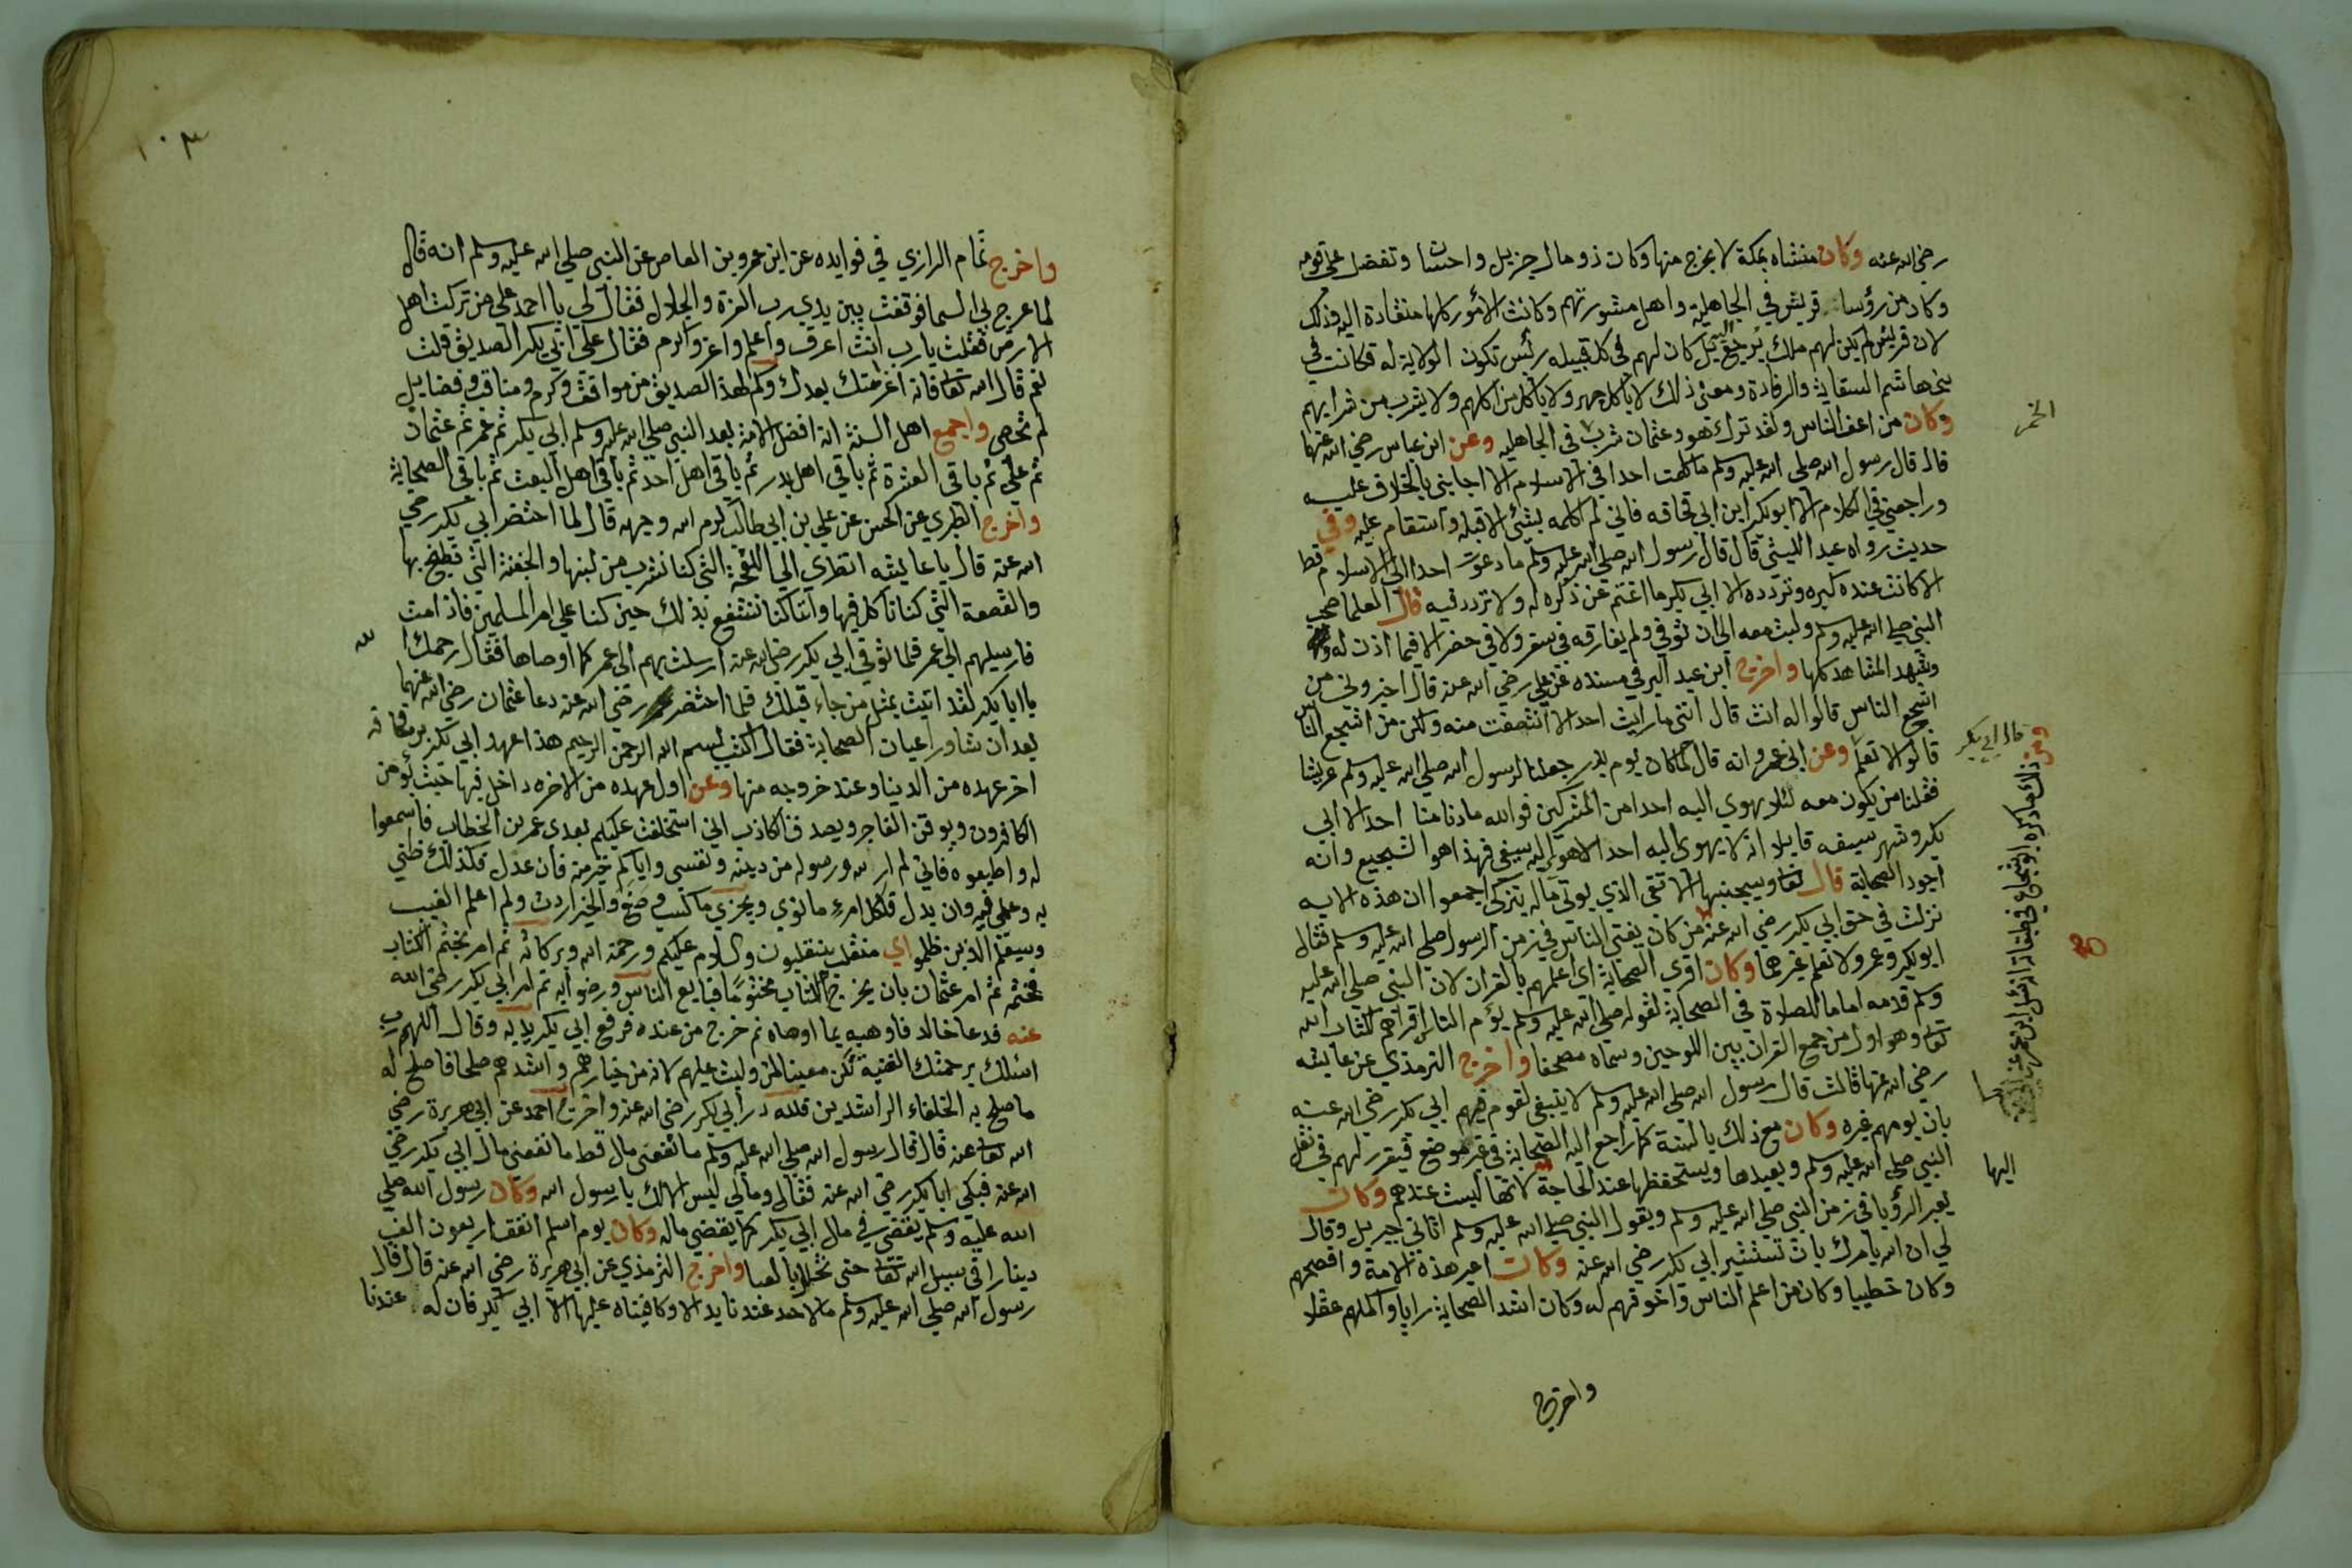 رضي الله عنه وكان منشاه بمكة لا يخرج منها وكان ذو مال جزيل واحسان وتفضل على قومه
وكان من رؤسا قريش في الجاهلية واهل مشورتهم وكانت الأمور كلها منقادة اليه وذلك
لان قريش لم يكن لهم ملك يرجع اليه بل كان لهم في كل قبيله رئس تكون الولاية له فكانت في
بني هاشم السقاية والرفادة ومعنى ذلك لا ياكل ولا ياكل من اكلهم ولا يشرب من شرابهم
وكان من اعف الناس ولقد ترك هو وعثمان شرب في الجاهليه وعن ابن عباس رضي الله عنهما
الخمر
قال قال رسول الله صلى الله عليه وسلم ما كلمت احدا في الاسلام الا اجابني بالخلاف عليه
وراجعني في الكلام الا ابو بكر ابن ابي قحافه فاني لم اكلمه بشئ الا قبله واستقام عليه وفي
حديث رواه عبد الليثي قال قال رسول الله صلى الله عليه وسلم ما دعوت احدا الى الاسلام قط
الا كانت عنده كبره وتردده الا ابي بكر ما اغتم عن ذكره له ولا تردد فيه قال العلما صحب
النبي صلى الله عليه وسلم ولبث معه الى ان توفي ولم يفارقه في سفر ولا في حضر الا فيما اذن له
وشهد المشاهد كلها واخرج ابن عبد البر في مسنده عن علي رضي الله عنه قال اخبروني من
اشجع الناس قالوا له انت قال انني ما رايت احدا الا انتصفت منه ولكن من اشجع الناس
قالوا لا نعلم وعن ابي عمرو انه قال لما كان يوم بدر جعلنا لرسول الله صلى الله عليه وسلم عريشا
قال ابي بكر
فقلنا من يكون معه لئلا يهوي اليه احدا من المشركين فوالله ما دنا منا احد الا ابي
بكر وشهر سيفه قايلا انه لا يهوى اليه احد الا هو اليه بسيفي فهذا هو الشجيع وانه
اجود الصحابة قال تعا وسيجنبها الاتقى الذي يوتي ماله يتزكى اجمعوا ان هذه الايه
نزلت في حق ابي بكر رضي الله عنه من كان يفتي الناس في زمن الرسول صلى الله عليه وسلم فقال
ابو بكر وعمر ولا نعلم غيرهما وكان اقرى الصحابة اى اعلمهم بالقران لان النبي صلى الله عليه
وسلم قدمه اماما للصلاة في الصحابة لقوله صلى الله عليه وسلم يؤم الناس اقراهم لكتاب الله
تعا وهو اول من جمع القران بين اللوحين وسماه مصحفا واخرج الترمذي عن عايشه
رضي الله عنها قالت قال رسول الله صلى الله عليه وسلم لا ينبغي لقوم فيهم ابي بكر رضي الله عنه
بان يومهم غيره وكان مع ذلك بالسنة كما راجع اليه الصحابة في غير موضع فيقرر لهم في نقل
النبي صلى الله عليه وسلم ويعيدها ويستحفظها عند الحاجة لانها ليست عندهم وكان
اليها
يعبر الرؤيا في زمن النبي صلى الله عليه وسلم ويقول النبي صلى الله عليه وسلم اتاني جبريل وقال
لي ان الله يامرك بان تستشير ابي بكر رضي الله عنه وكان اعبر هذه الامة وافصحهم
وكان خطيبا وكان من اعلم الناس واخوفهم لله وكان اشد الصحابة رايا واكملهم عقلا
واخرج
١٠٣
واخرج تمام الرازي في فوايده عن ابن عمرو بن العاص عن النبي صلى الله عليه وسلم انه قال
لما عرج بي السما فوقفت بين يدي رب العزة والجلال فقال لي يا احمد على من تركت اهل
الارض فقلت يا رب انت اعرف واعلم واعز واكرم فقال على ابي بكر الصديق قلت
نعم قال الله تعا فانه بعدك وكم لهذا الصديق من مواقف وكرم ومناقب وفضايل
لم تحصى واجمع اهل السنة انه افضل الامة بعد النبي صلى الله عليه وسلم ابي بكر ثم عمر ثم عثمان
ثم علي ثم باقي العشرة ثم باقي اهل بدر ثم باقي اهل احد ثم باقي اهل البعث ثم باقي الصحابة
واخرج الطبري عن الحسن عن علي بن ابي طالب كرم الله وجهه قال لما احتضر ابي بكر رضي
الله عنه قال يا عايشه انظرى الي اللقحة التي كنا نشرب من لبنها والجفنة التي نطبخ بها
والقصعة التي كنا ناكل فيها واننا كنا ننتفع بذلك حين كنا على امر المسلمين فاذا مت
فارسيلهم الى عمر فلما توفي ابي بكر رضي الله عنه ارسلت بهم الى عمر كما اوصاها فقال رحمك الله
يا ابا بكر لقد اتيت بمثل من جاء قبلك فلما احتضر رضي الله عنه دعا عثمان رضي الله عنهما
بعد ان شاور اعيان الصحابة فقال اكتب بسم الله الرحمن الرحيم هذا عهد ابي بكر بن قحافه
اخر عهده من الدينا وعند خروجه منها وعن اول عهده من الاخره داخل فيها حيث يؤمن
الكافرون ويوقن الفاجر ويصدق الكاذب اني استخلفت عليكم بعدى عمر بن الخطاب فاسمعوا
له واطيعوه فاني لم ار لله ورسوله من دينه ونفسي واياكم خير منه فان عدل فكذلك ظني
به وعلمي فيه وان بدل فلكل امرء ما نوي ويجزي ما كسب والخير اردت ولم اعلم الغيب
وسيعلم الذين ظلموا اي منقلب ينقلبون والسلام عليكم ورحمة الله وبركاته ثم امر بختم الكتاب
فختمه ثم امر عثمان بان يخرج الكتاب مختومًا فبايع الناس ورضوا به ثم امر ابي بكر رضي الله
عنه فدعا خالد فاوصيه بما اوصاه ثم خرج من عنده فرفع ابي بكر يديه وقال اللهم رب
ما صلح به الخلفاء الراشدين فلله در ابي بكر رضي الله عنه واخرج احمد عن ابي هريرة رضي
الله تعا عنه قال قال رسول الله صلى الله عليه وسلم ما نفعني مال قط ما نفعني مال ابي بكر رضي
الله عنه فبكى ابا بكر رضي الله عنه فقال ومالي ليس الا لك يا رسول الله وكان رسول الله صلى
الله عليه وسلم يقضي في مال ابي بكر كما يقضي ماله وكان يوم اسلم انفق اربعون الف
دينارا في سبيل الله تعا حتى تخلل بالعبا واخرج الترمذي عن ابي هريرة رضي الله عنه قال قال
رسول الله صلى الله عليه وسلم ما لاحد عندنا يد الا وكافيناه عليها الا ابي بكر فان له عندنا